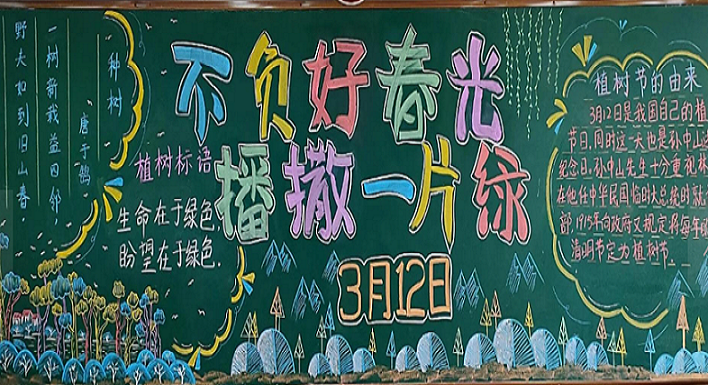 种树
唐于鹄
一树新栽益四邻，
野夫如到旧山春，
不负好春光
播撒一片绿
3月12日
植树标语
生命在于绿色，
盼望在于绿色．
植树节的由来
3月12日是我国自己的植
节日，同时这一天也是孙中山
纪念日．孙中山先生十分重视林
在他任中华民国临时大总统时就
部．1915年向政府又规定将每年
清明节定为植树节．